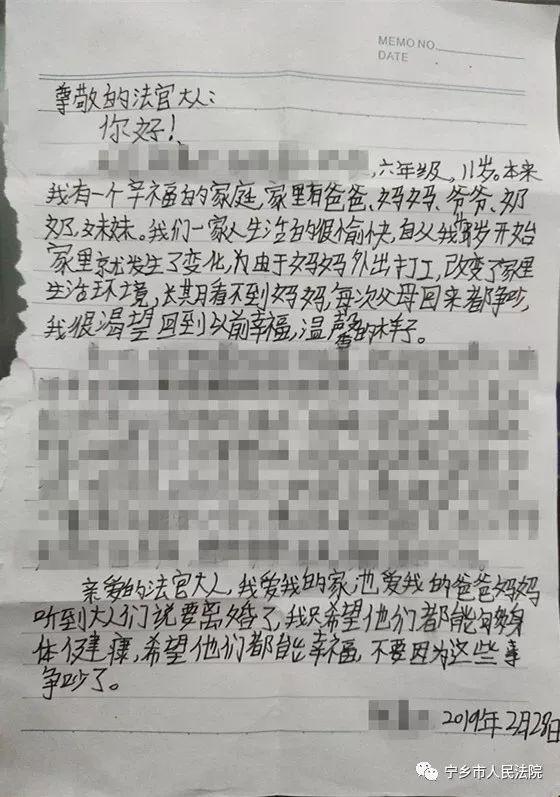 MEMO NO.
DATE
尊敬的法官大人:
你好!
,六年级,11岁。本来
我有一个辛福的家庭,家里有爸爸、妈妈、爷爷、奶
奶,妹妹。我们一家人生活的很愉快,自从我岁开始
家里就发生了变化,为由于妈妈外出打工,改变了家里
生活环境,长其月看不到妈妈,每次父母回来都争吵,
我很渴望回到以前幸福,温馨的样子。
亲爱的法官大人,我爱我的家,也爱我的爸爸妈妈
听到大人们说要离婚了,我只希望他们都能够身
体健康,希望他们都能幸福,不要因为这些事
争吵了。
2019年2月28日
宁乡市人民法院